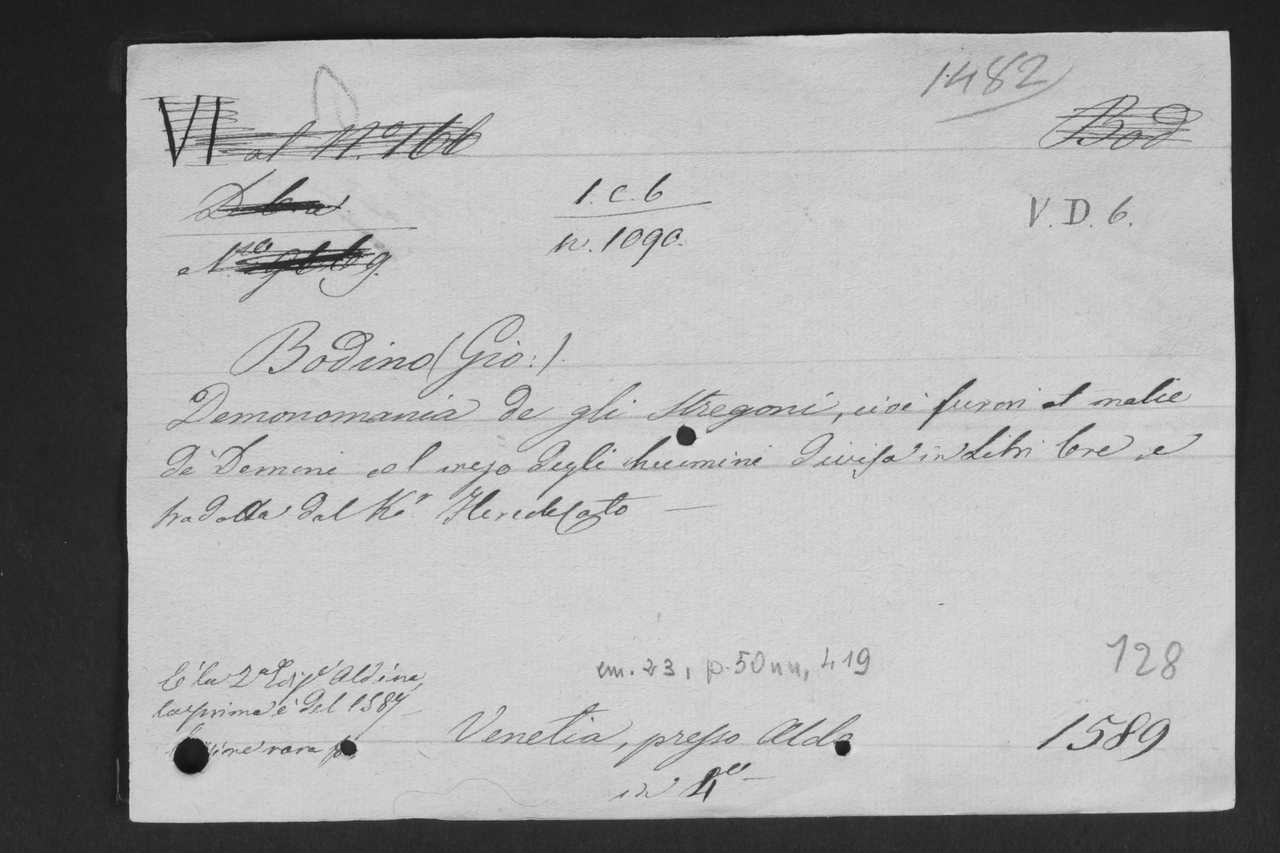 1482
VI al N.º 166
Bod
1. c. 6
V. D. 6.
n. 1090.
Bodino (Gio:).
Demonomania de gli Stregoni, cioè furori et malie
de' Demoni col mezo degli huomini divisa in Libri tre, e
tradotta dal K.r Hercole Cato —
È la 2ª Ediz.e Aldina,
la prima è del 1587 —
rara
cm. 23, p. 50 nn, 419
128
Venetia, presso Aldo
1589
in 4º —